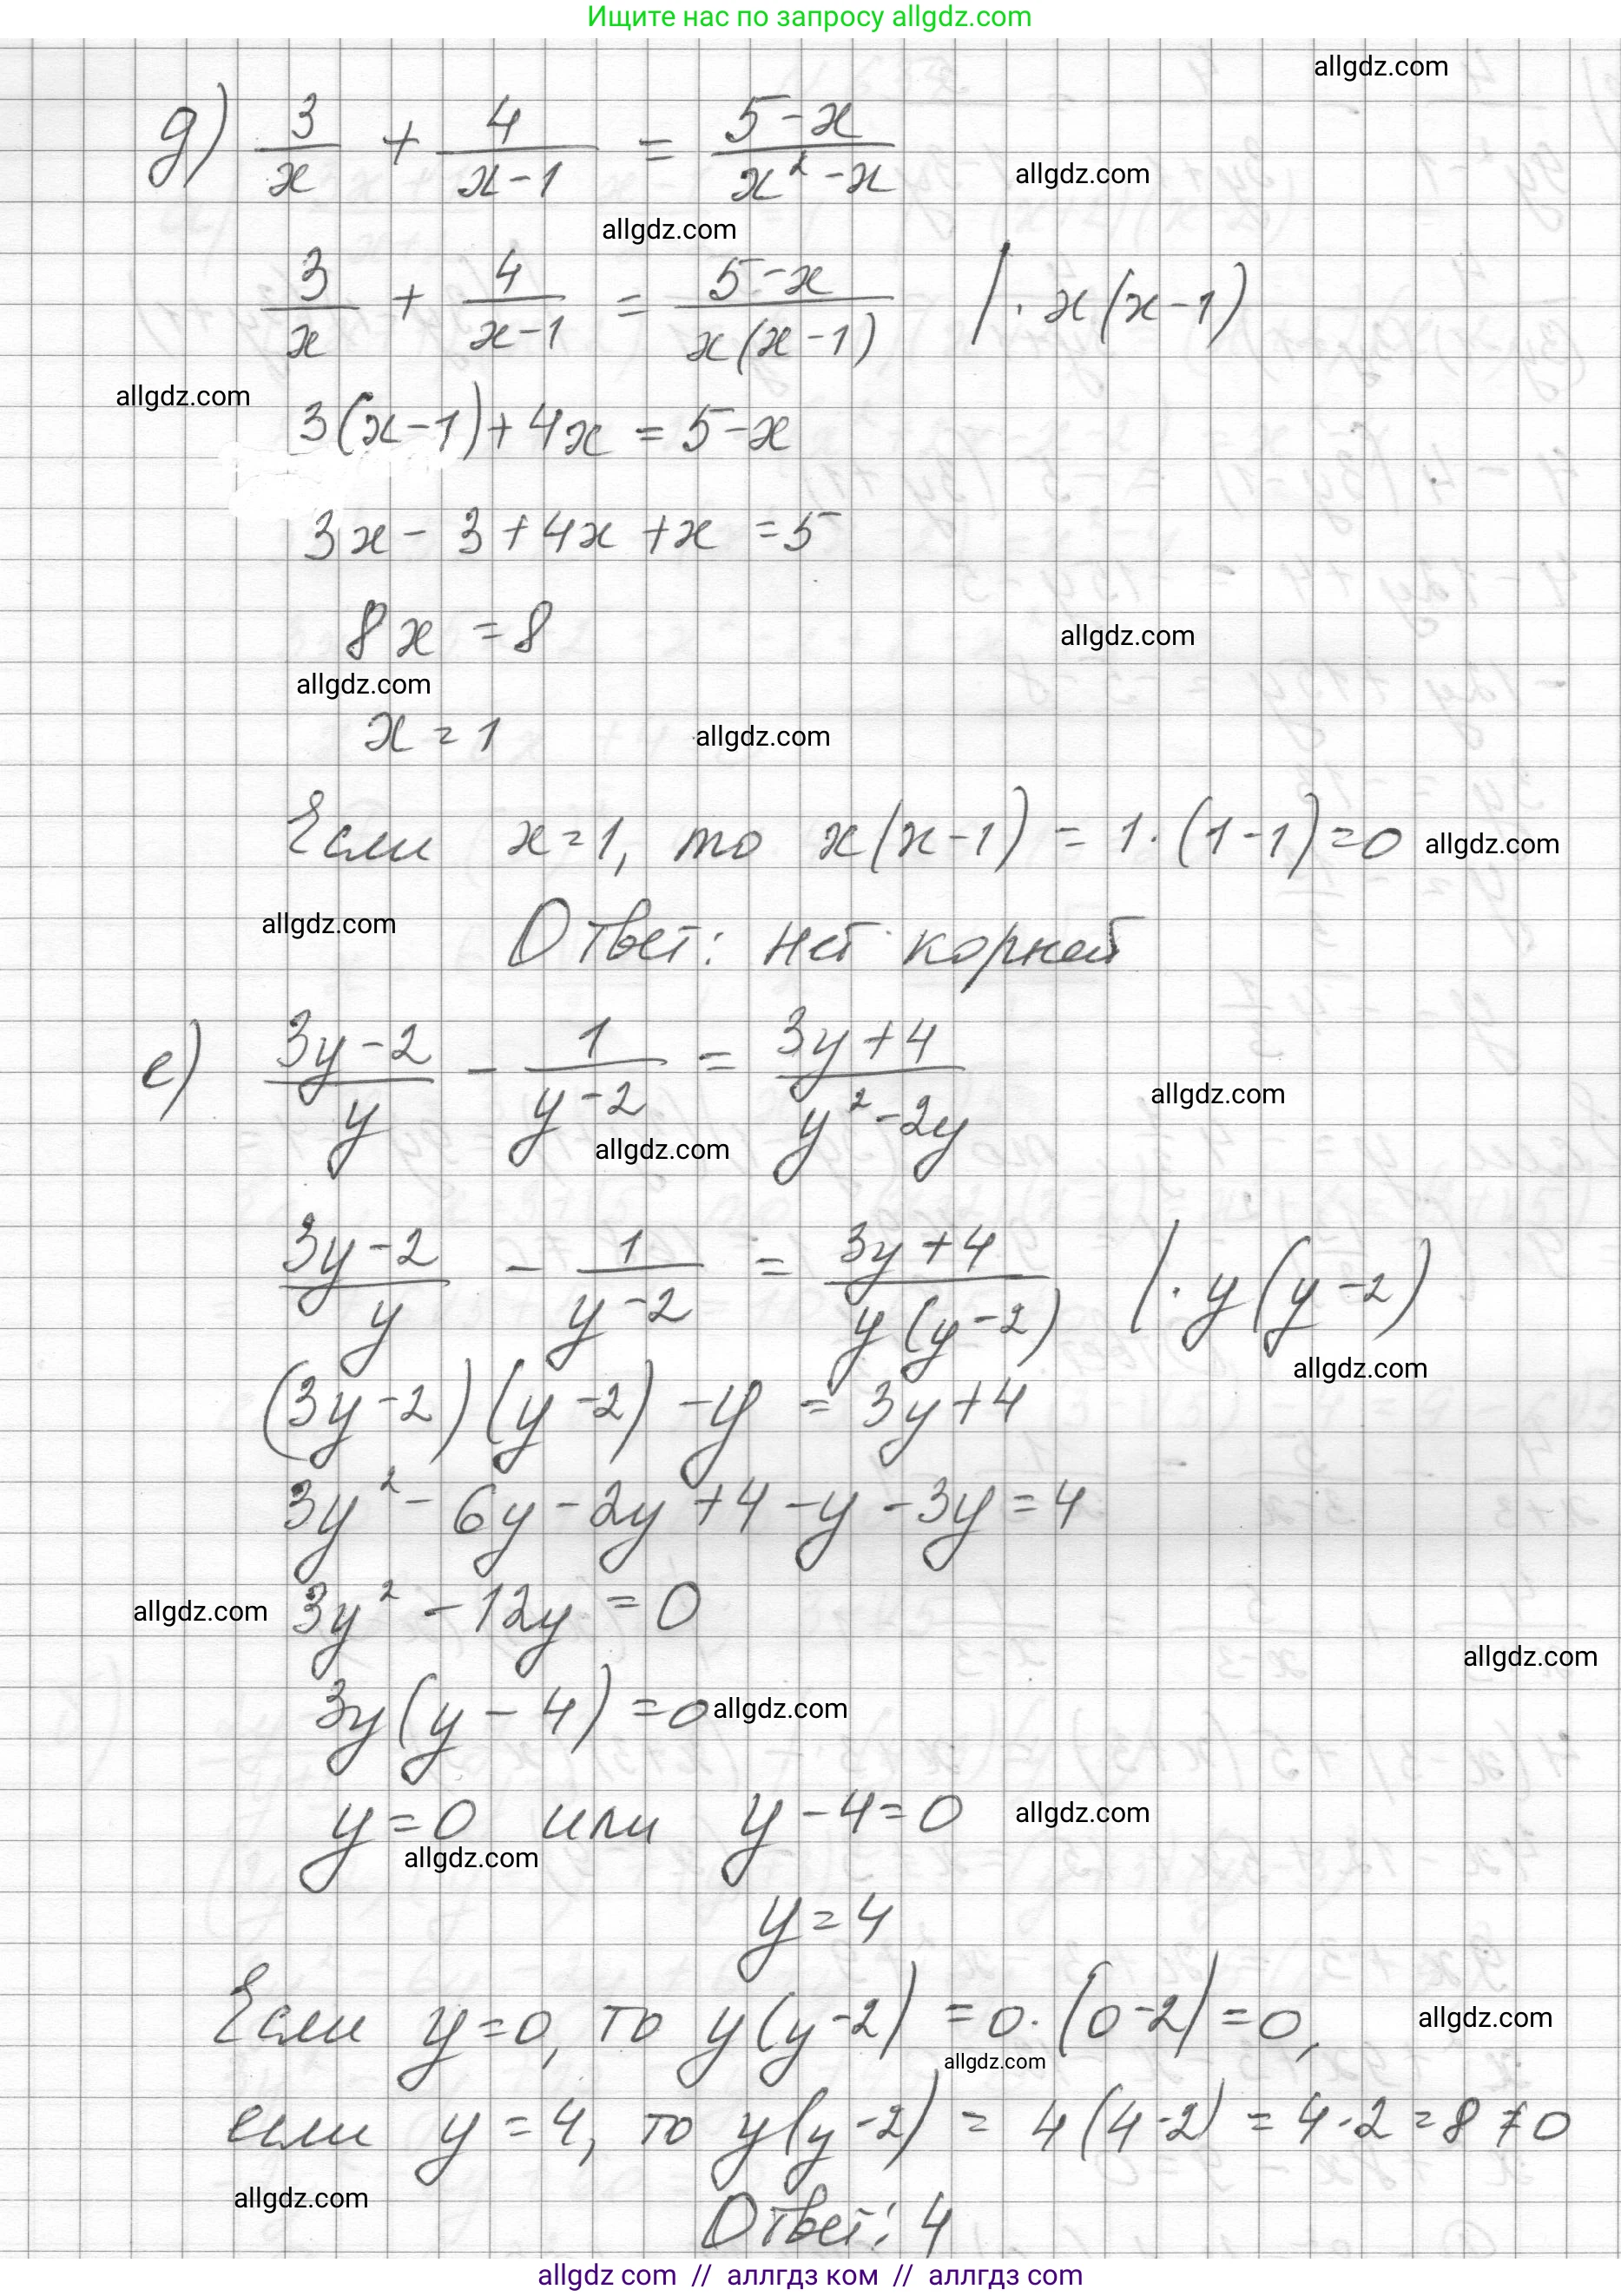 Ищите нас по запросу allgdz.com
allgdz.com
д) 3/x + 4/(x-1) = (5-x)/(x²-x)
allgdz.com
allgdz.com
3/x + 4/(x-1) = (5-x)/(x(x-1)) | · x(x-1)
allgdz.com
3(x-1)+4x = 5-x
3x - 3 + 4x + x = 5
8x = 8
allgdz.com
allgdz.com
x = 1
allgdz.com
Если x=1, то x(x-1) = 1·(1-1)=0
allgdz.com
allgdz.com
Ответ: нет корней
е) (3y-2)/y - 1/(y-2) = (3y+4)/(y²-2y)
allgdz.com
allgdz.com
(3y-2)/y - 1/(y-2) = (3y+4)/(y(y-2)) | · y(y-2)
allgdz.com
(3y-2)(y-2) - y = 3y+4
3y² - 6y - 2y + 4 - y - 3y = 4
allgdz.com
3y² - 12y = 0
allgdz.com
3y(y-4) = 0
allgdz.com
y=0 или y-4=0
allgdz.com
allgdz.com
y = 4
Если y=0, то y(y-2) = 0·(0-2)=0,
allgdz.com
allgdz.com
если y=4, то y(y-2) = 4(4-2) = 4·2 = 8 ≠ 0
allgdz.com
Ответ: 4
allgdz.com // аллгдз ком // аллгдз com